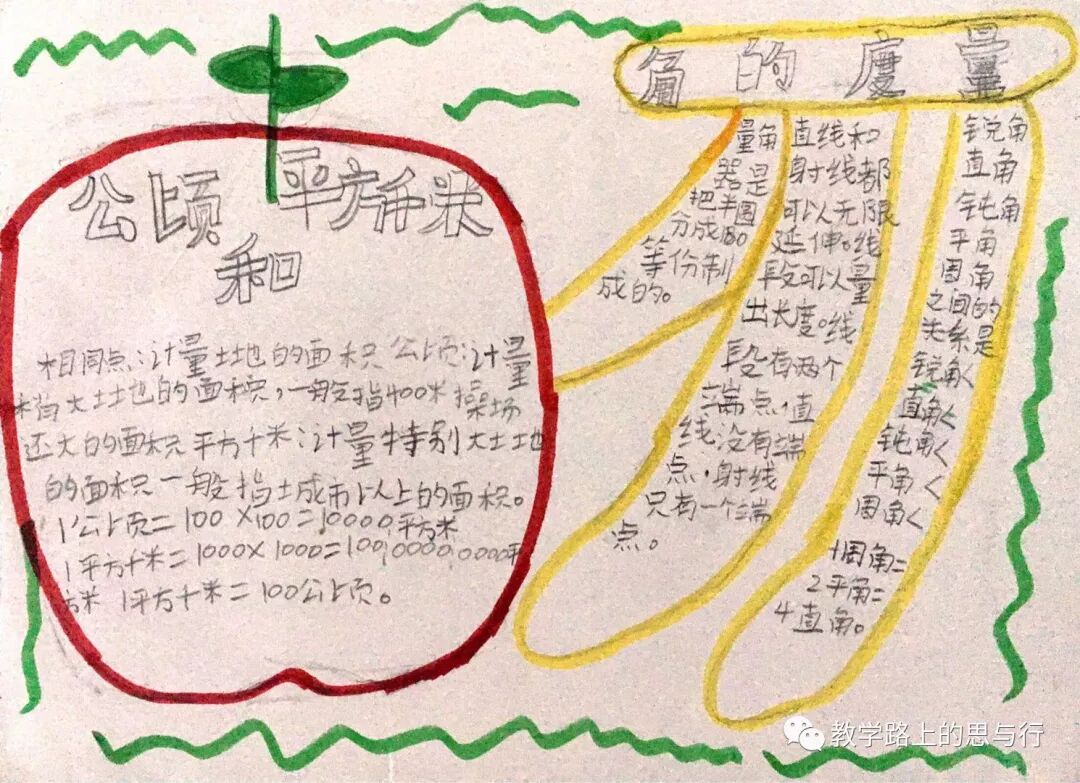 公顷 平方千米
和
相同点:计量土地的面积 公顷:计量
稍大土地的面积,一般指400米操场
还大的面积 平方千米:计量特别大土地
的面积一般指土成市以上的面积。
1公顷=100×100=10000平方米
1平方千米=1000×1000=100,0000,0000平
方米 1平方千米=100公顷。
角的度量
量角
器是
把半圆
分成180
等份制
成的。
直线和
射线都
可以无限
延伸。线
段可以量
出长度。线
段有两个
端点,值
线没有端
点,射线
只有一个端
点。
锐角
直角
钝角
平角
周角
之间的
关系是
锐角<
直角<
钝角<
平角<
周角<
1周角=
2平角=
4直角。
教学路上的思与行